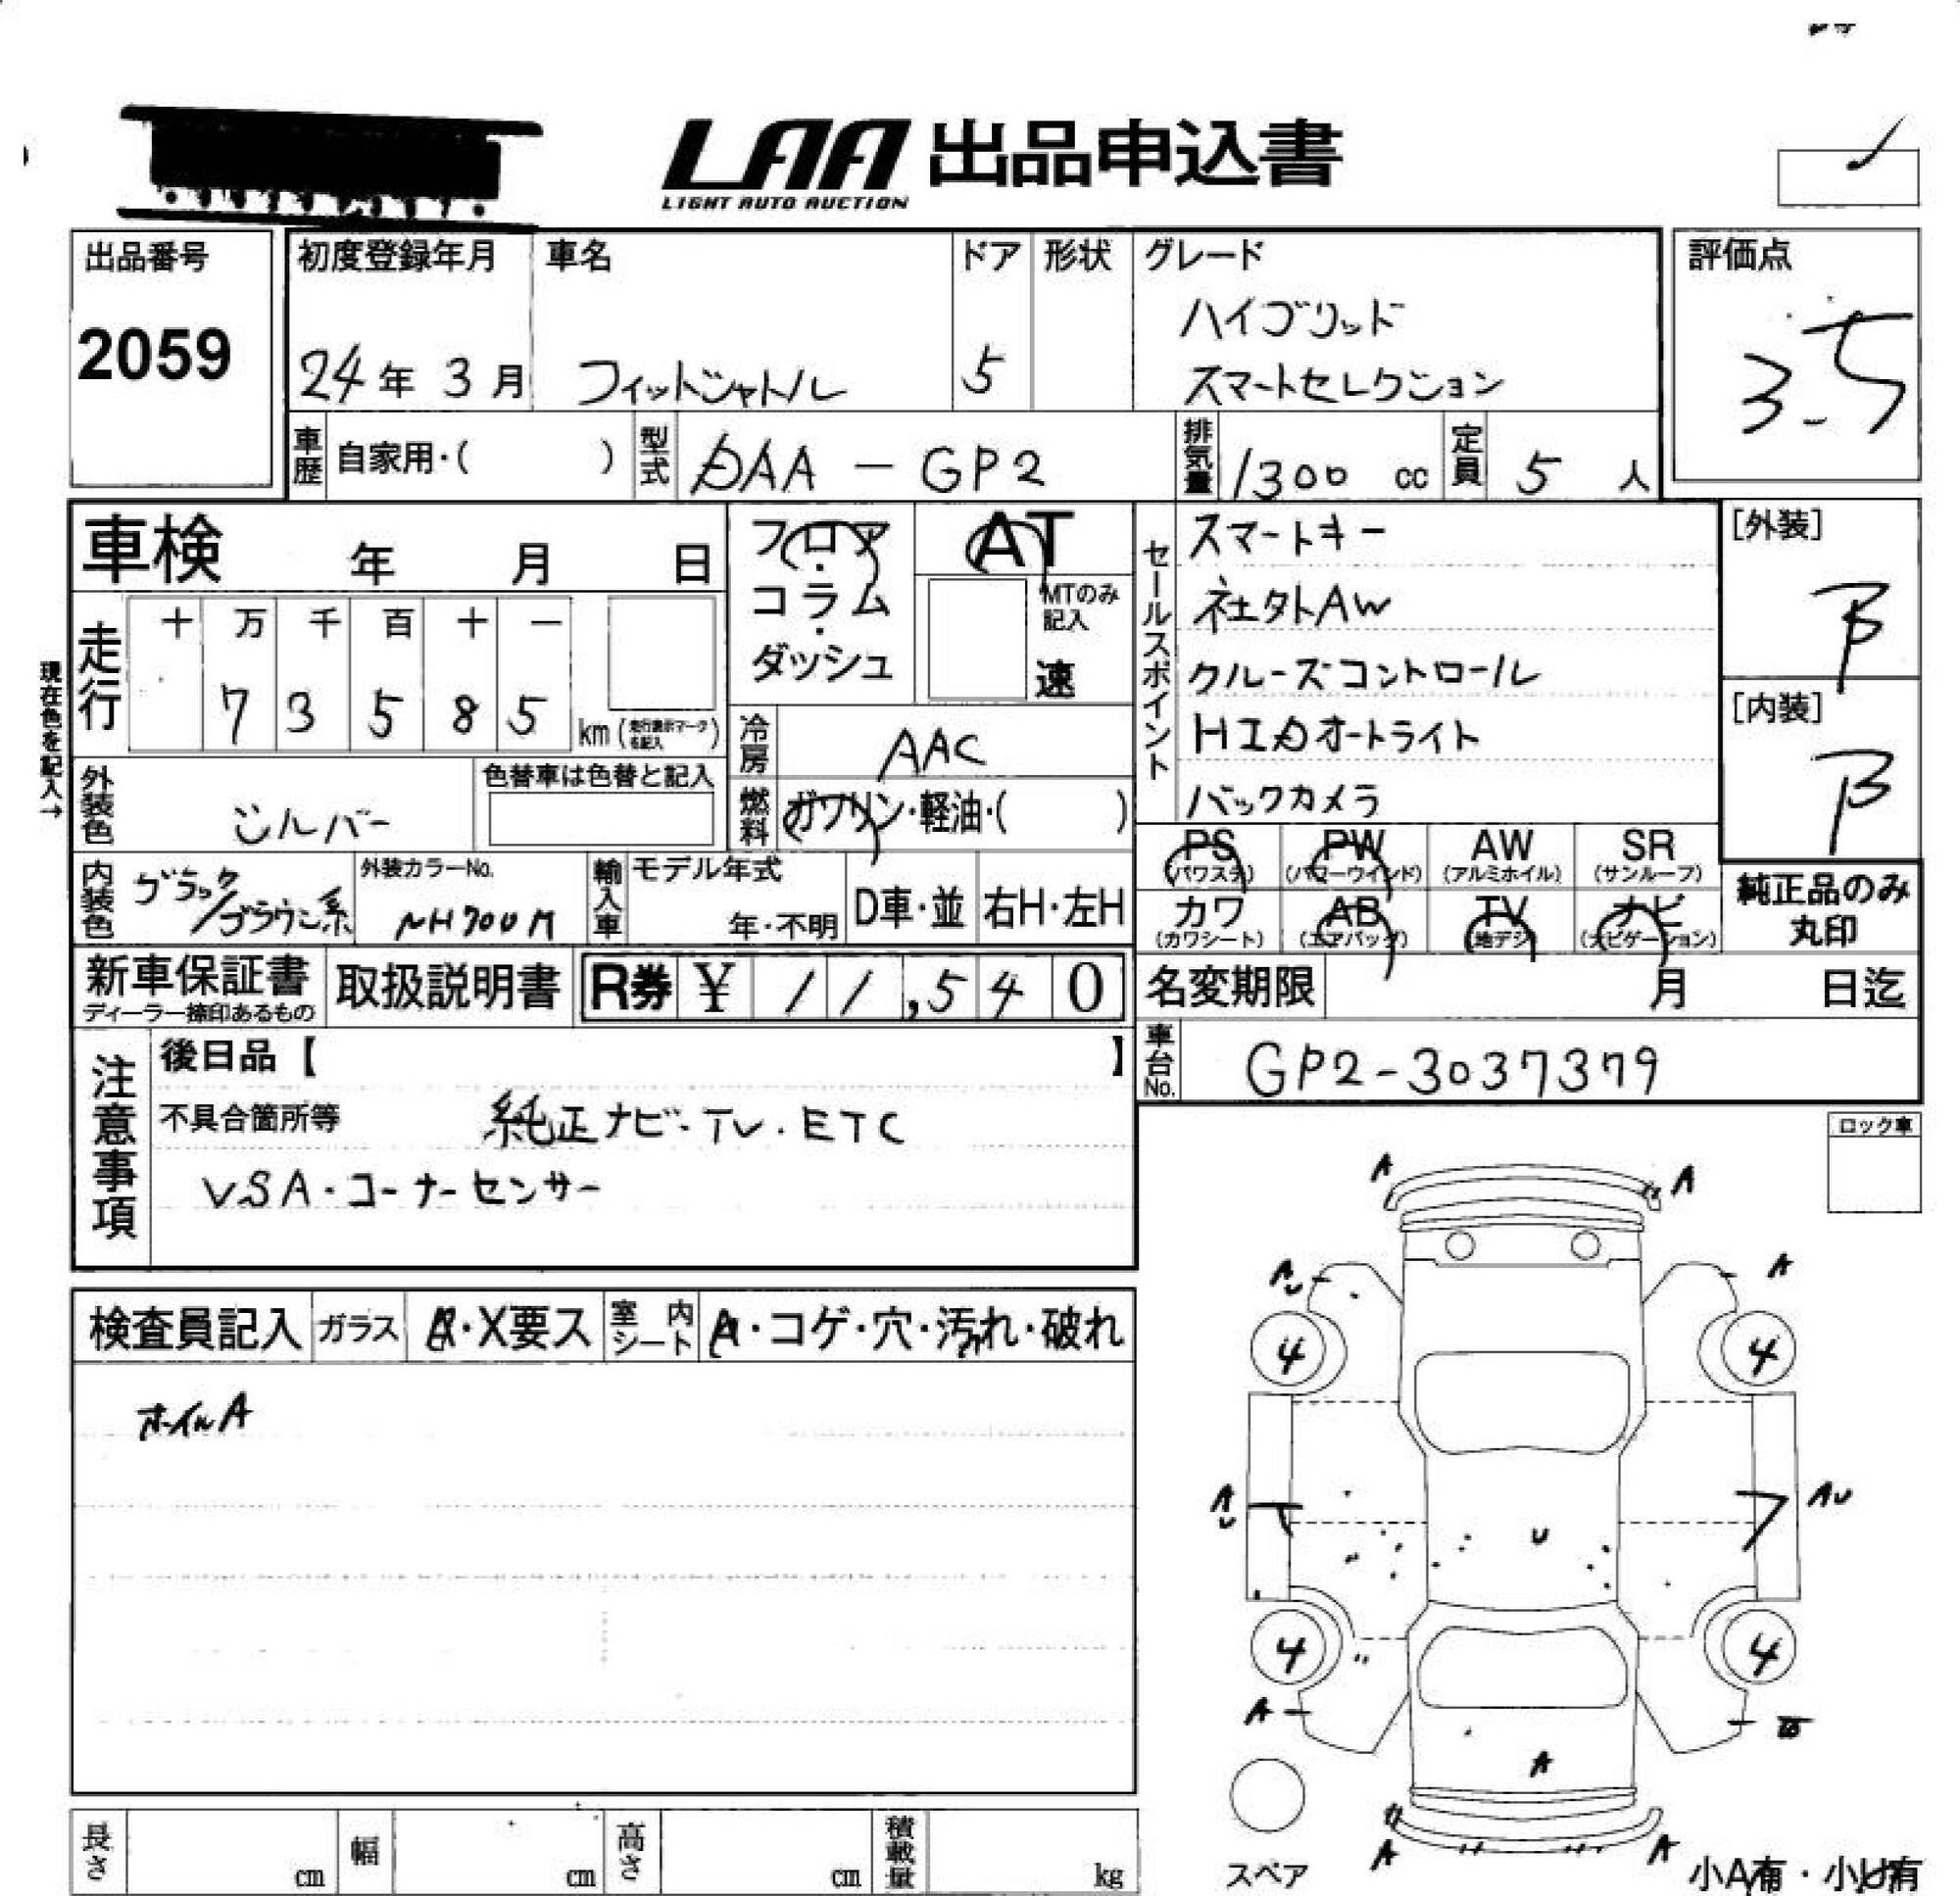 LAA 出品申込書
LIGHT AUTO AUCTION
出品番号
2059
初度登録年月
24年 3月
車名
フィットシャトル
ドア
5
形状
グレード
ハイブリッド
スマートセレクション
評価点
3.5
車歴
自家用・( )
型式
DAA - GP2
排気量
1300 cc
定員
5 人
車検 年 月 日
フロア・コラム・ダッシュ
AT
MTのみ記入
速
セールスポイント
スマートキー
社外AW
クルーズコントロール
HIDオートライト
バックカメラ
[外装]
B
[内装]
B
現在色を記入→
走行
十 万 千 百 十 一
7 3 5 8 5
km (走行表示マークを記入)
冷房
AAC
外装色
シルバー
色替車は色替と記入
燃料
ガソリン・軽油・( )
PS (パワステ)
PW (パワーウインド)
AW (アルミホイル)
SR (サンルーフ)
カワ (カワシート)
AB (エアバッグ)
TV (地デジ)
ナビ (ナビゲーション)
純正品のみ
丸印
内装色
ブラック/ブラウン系
外装カラーNo.
NH700M
輸入車
モデル年式
年・不明
D車・並
右H・左H
新車保証書
ディーラー捺印あるもの
取扱説明書
R券 ¥ 11,540
名変期限 月 日迄
車台No.
GP2-3037379
注意事項
後日品【 】
不具合箇所等 純正ナビ・TV・ETC
VSA・コーナーセンサー
ロック車
検査員記入
ガラス
A・X要ス
室内シート
A・コゲ・穴・汚れ・破れ
ホイルA
A A
AU A
4 4
AU AU
U
4 4
A
A
A A
スペア
小A有・小U有
長さ cm
幅 cm
高さ cm
積載量 kg